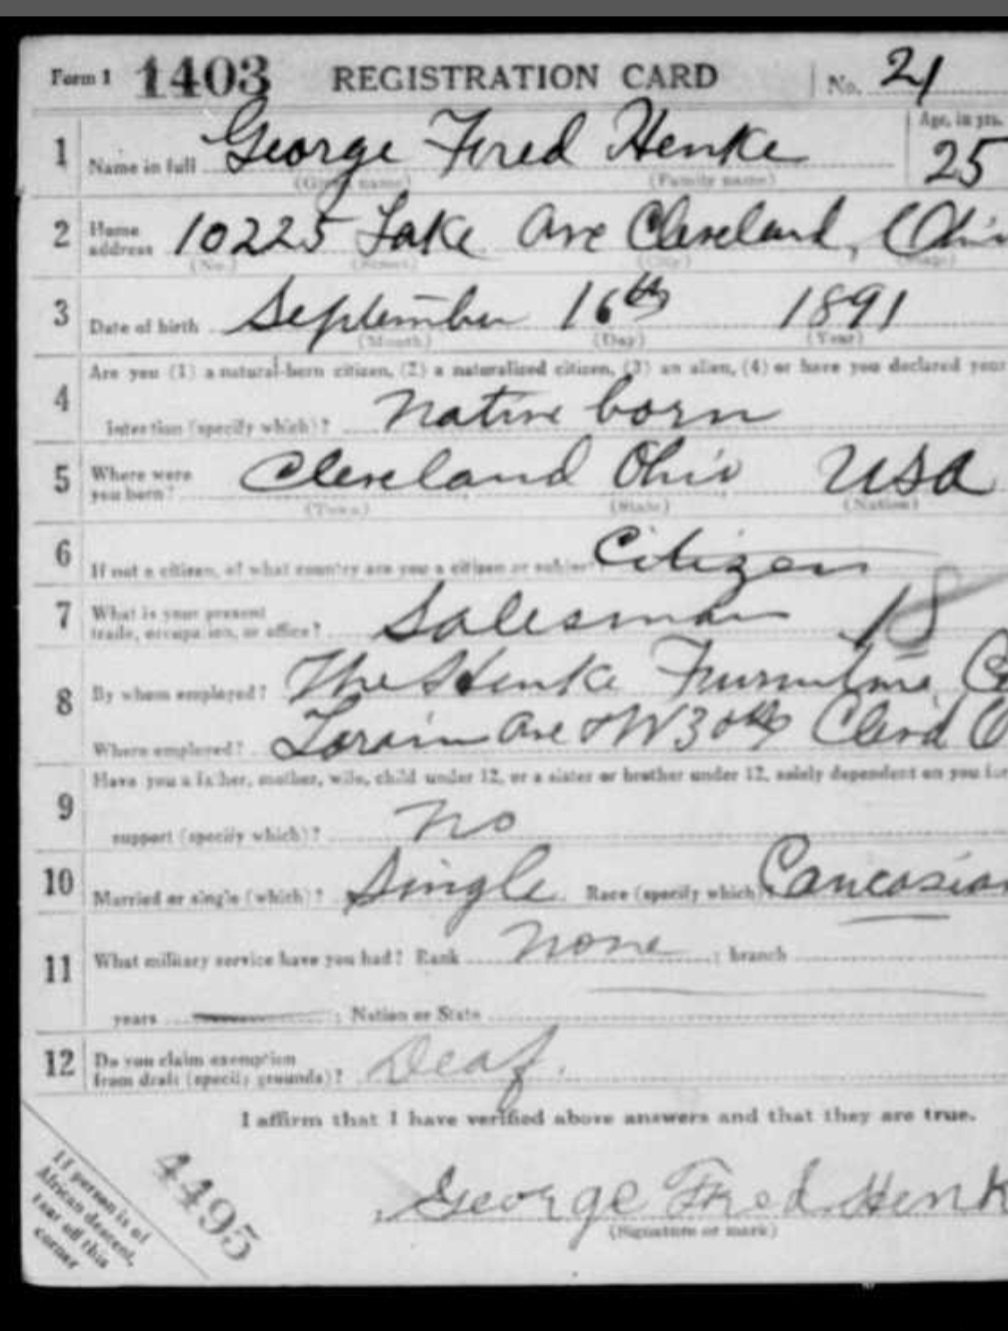 Form 1 1403 REGISTRATION CARD No. 21
1 Name in full George Fred Henke Age, in yrs. 25
(Given name) (Family name)
2 Home address 10225 Lake Ave Cleveland, Ohio
(No.) (Street) (City) (State)
3 Date of birth September 16th 1891
(Month) (Day) (Year)
Are you (1) a natural-born citizen, (2) a naturalized citizen, (3) an alien, (4) or have you declared your
4 intention (specify which)? Native born
5 Where were you born? Cleveland Ohio USA
(Town) (State) (Nation)
6 If not a citizen, of what country are you a citizen or subject? Citizen
7 What is your present trade, occupation, or office? Salesman 18
8 By whom employed? The Henke Furniture Co
Where employed? Lorain Ave & W 30th Clevd O
Have you a father, mother, wife, child under 12, or a sister or brother under 12, solely dependent on you for
9 support (specify which)? No
10 Married or single (which)? Single Race (specify which)? Caucasian
11 What military service have you had? Rank None ; branch
years ; Nation or State
12 Do you claim exemption from draft (specify grounds)? Deaf.
I affirm that I have verified above answers and that they are true.
George Fred Henk
(Signature or mark)
If person is of
African descent,
tear off this
corner
4495